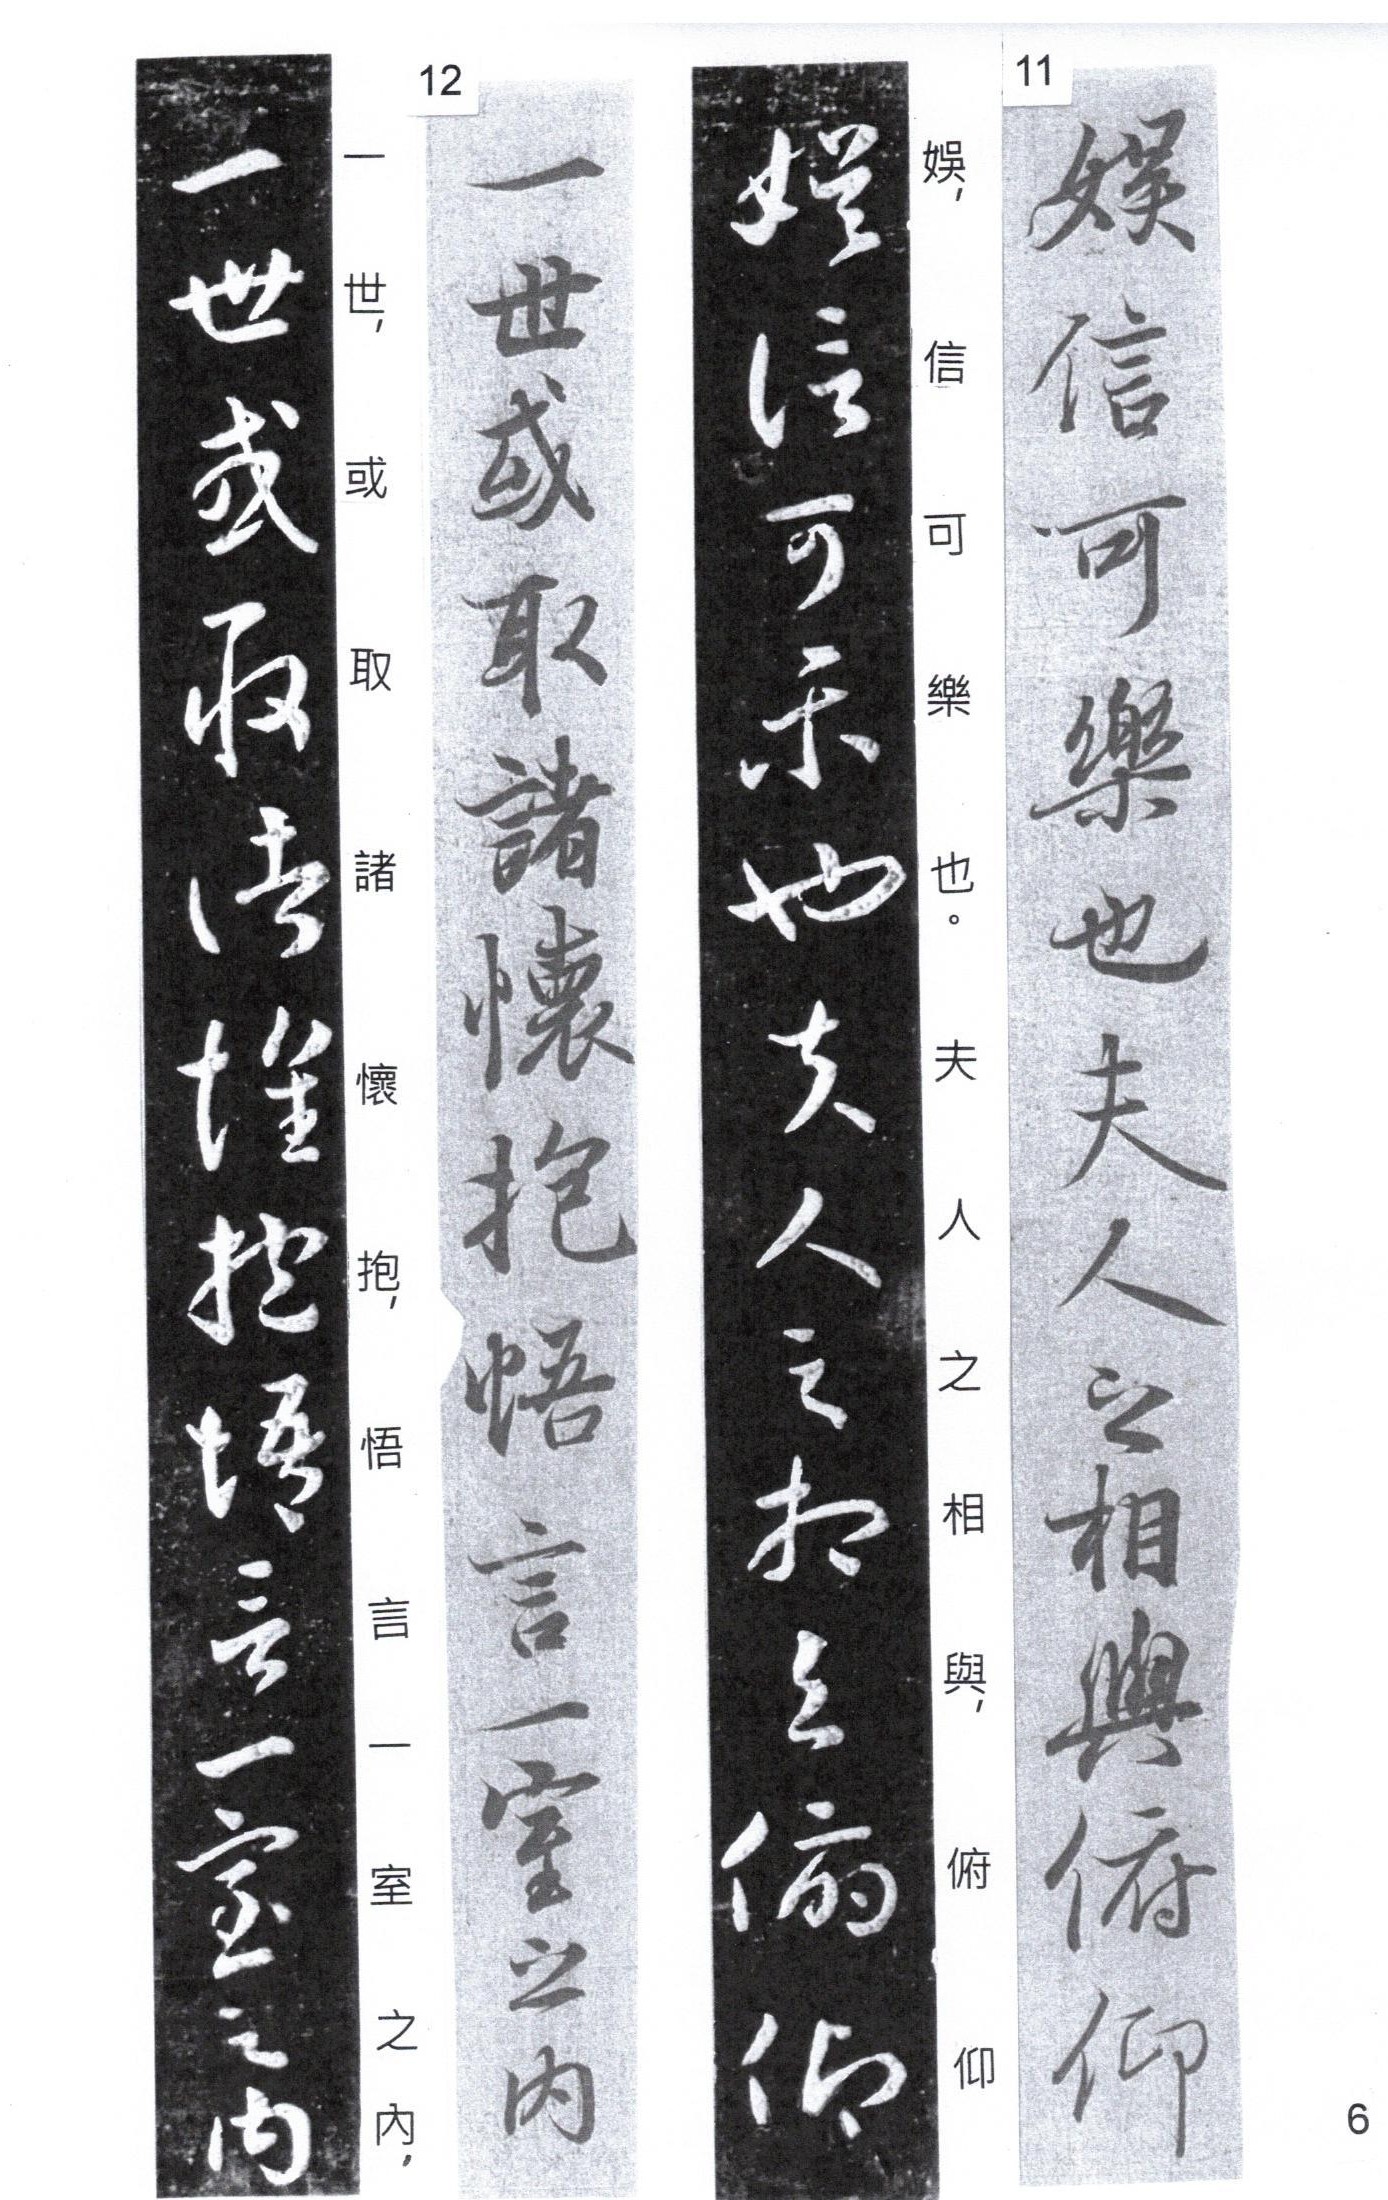 11
娛信可樂也夫人之相與俯仰
娛,信可樂也。夫人之相與,俯仰
娛信可樂也夫人之相與俯仰
12
一世或取諸懷抱悟言一室之内
一世,或取諸懷抱,悟言一室之內,
一世或取諸懷抱悟言一室之内
6